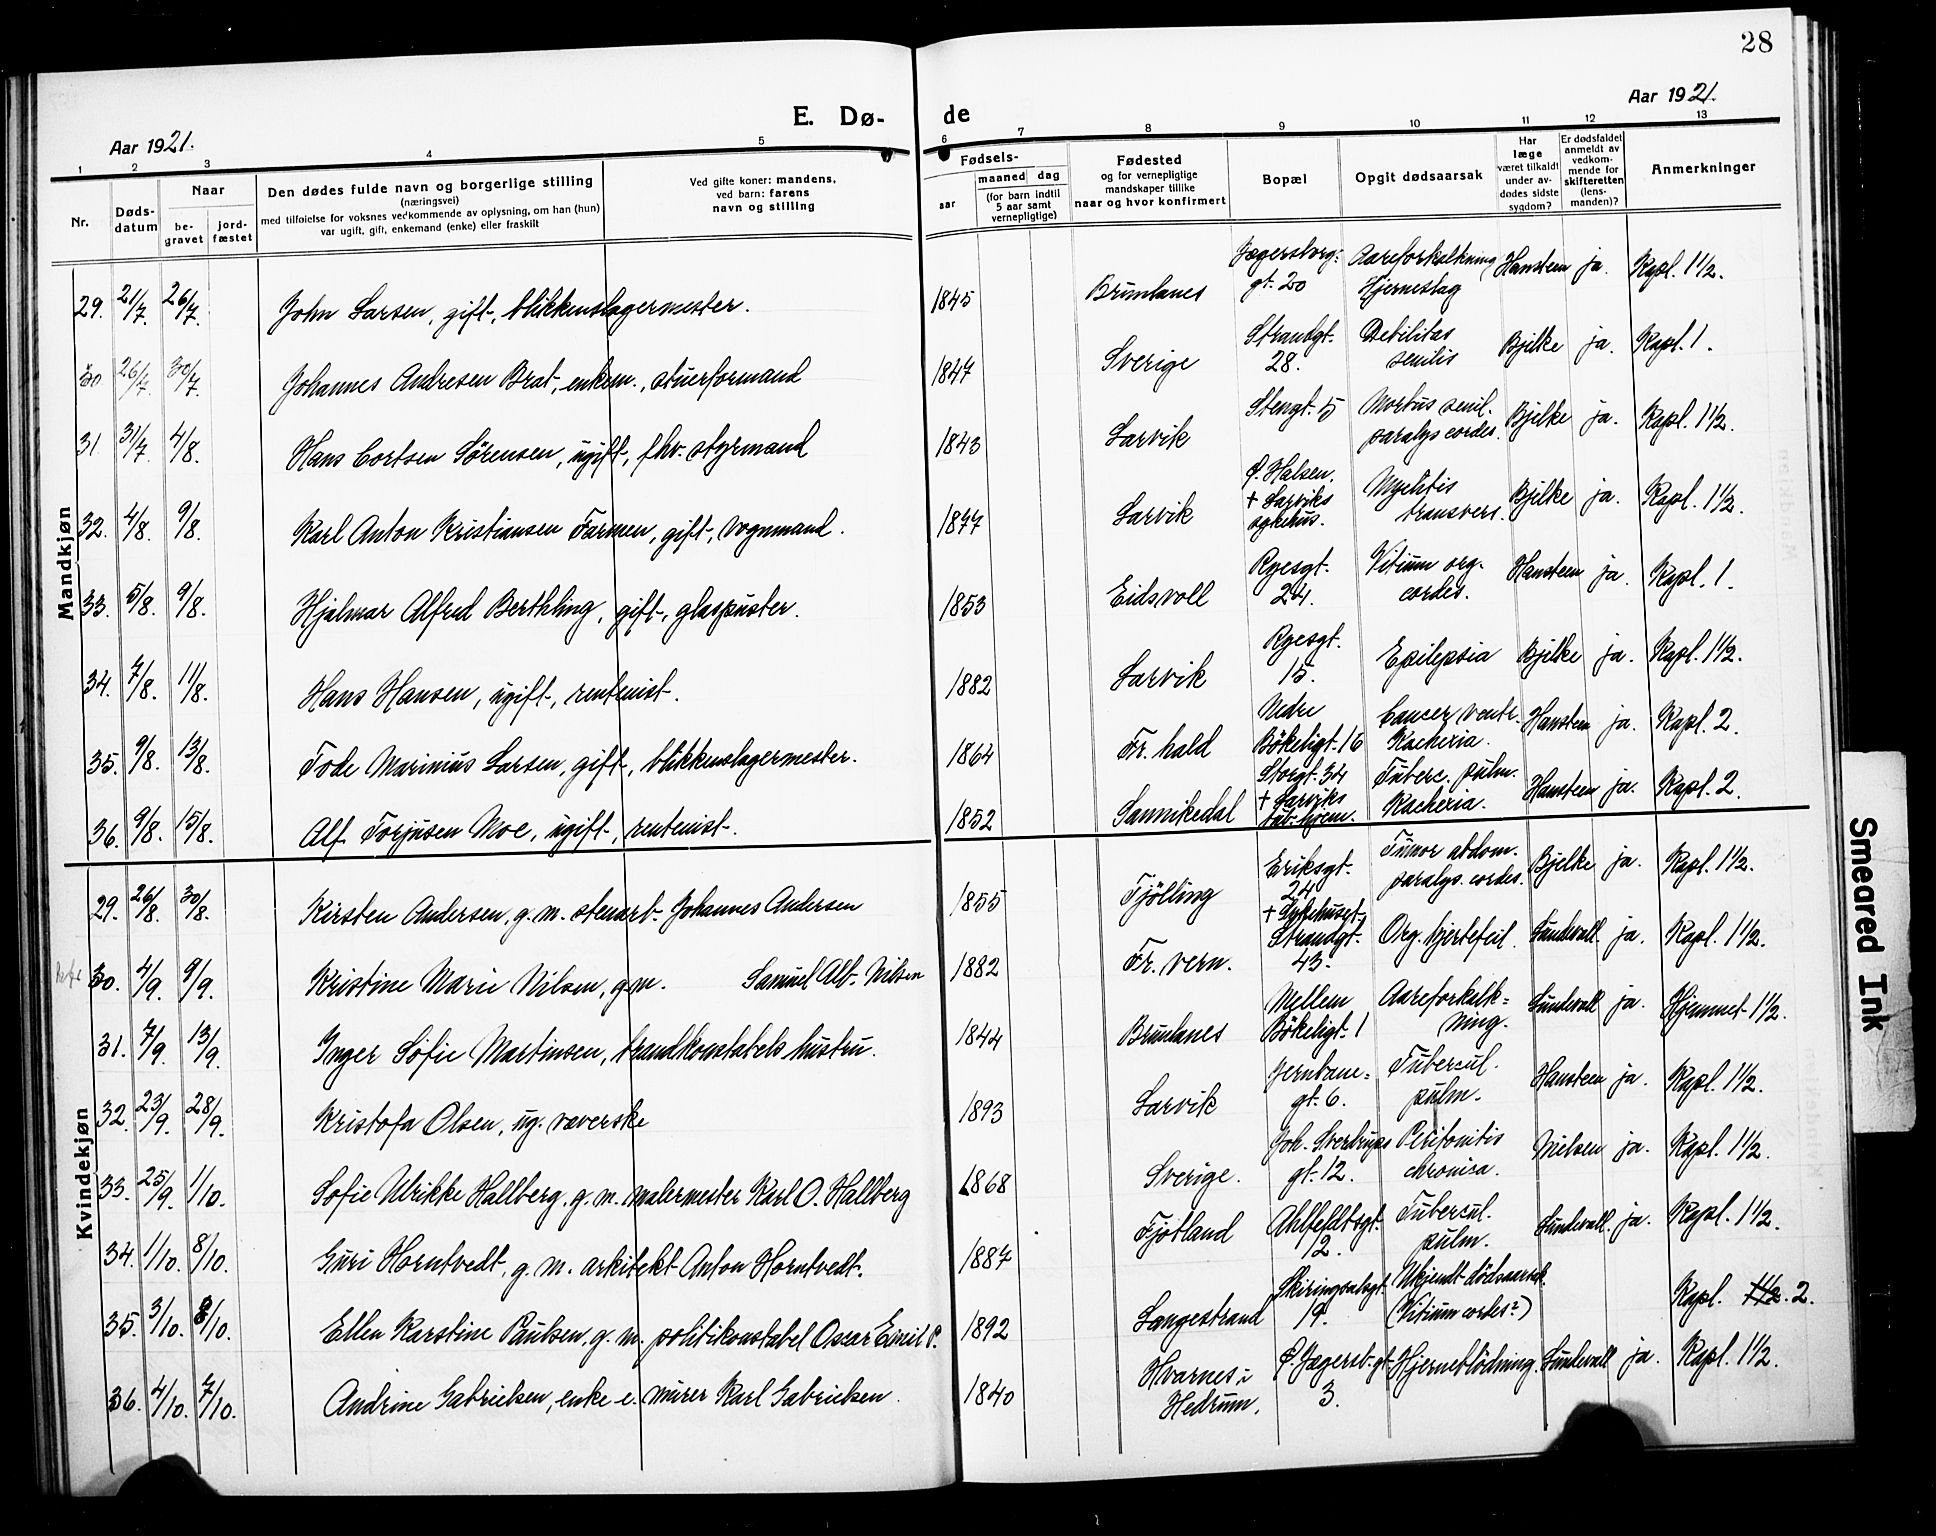 28
Aar 1921.
E. Dø-
de
Aar 1921.
1 2 3 4 5 6 7 8 9 10 11 12 13
Nr.
Døds-
datum
Naar
be-
gravet
jord-
fæstet
Den dødes fulde navn og borgerlige stilling
(næringsvei)
med tilføielse for voksnes vedkommende av oplysning, om han (hun)
var ugift, gift, enkemand (enke) eller fraskilt
Ved gifte koner: mandens,
ved barn: farens
navn og stilling
Fødsels-
aar
maaned
dag
(for barn indtil
5 aar samt
vernepligtige)
Fødested
og for vernepligtige
mandskaper tillike
naar og hvor konfirmert
Bopæl
Opgit dødsaarsak
Har
læge
været tilkaldt
under av-
dødes sidste
sygdom?
Er dødsfaldet
anmeldt av
vedkom-
mende for
skifteretten
(lens-
manden)?
Anmerkninger
Mandkjøn
29. 21/7. 26/7. John Larsen, gift, blikkenslagermester. 1845 Brunlanes Jegersborg:
gt. 20 Aareforkalkning
Hjerneslag Hansteen ja. Kapl. 1½.
30 26/7. 30/7. Johannes Andresen Brat, enkem., stuerformand 1847 Sverige Strandgt.
28. Debilitas
senilis Bjelke ja. Kapl. 1.
31. 31/7. 4/8. Hans Cortsen Sörensen, ugift, fhv. styrmand 1843 Larvik Stengt. 5 Morbus senil.
paralys cordes. Bjelke ja. Kapl. 1½.
32. 4/8. 9/8. Karl Anton Kristiansen Farmen, gift, vognmand. 1877 Larvik Ø. Halsen,
+ Larviks
sykehus. Myelitis
transvers. Bjelke ja. Kapl. 1½.
33. 5/8. 9/8. Hjalmar Alfred Berthling, gift, glaspuster. 1853 Eidsvoll Ryesgt.
24. Vitium org.
cordes. Hansteen ja. Kapl. 1.
34. 7/8. 11/8. Hans Hansen, ugift, rentenist. 1882 Larvik Ryesgt.
15. Epilepsia Bjelke ja. Kapl. 1½.
35. 9/8. 13/8. Tode Marinius Larsen, gift, blikkenslagermester. 1864 Fr. hald Nedre
Bökeligt. 16 Cancer ventr.
Kachexia. Hansteen ja. Kapl. 2.
36. 9/8. 15/8. Alf Torjusen Moe, ugift, rentenist. 1852 Sannikedal Storgt. 34
+ Larviks
tub. hjem. Tuberc. pulm.
Kachexia. Hansteen ja. Kapl. 2.
Kvindekjøn
29. 26/8. 30/8. Kirsten Andersen, g. m. stenarb. Johannes Andersen 1855 Tjölling Eriksgt.
24
+ Sykehuset Tumor abdom.
paralys. cordes. Bjelke ja. Kapl. 1½.
30. 4/9. 9/9. Kristine Marie Nilsen, g.m. Samuel Alb. Nilsen 1882 Fr. vern. Strandgt.
43. Org. hjertefeil. Sundevall ja. Kapl. 1½.
31. 7/9. 13/9. Inger Sofie Martinsen, brandkonstabels hustru. 1844 Brunlanes Mellem
Bökeligt. 1 Aareforkalk=
ning. Sundevall ja. Hjemmet 1½.
32. 23/9. 28/9. Kristofa Olsen, ug. væverske 1893 Larvik Jernbane=
gt. 6. Tubercul.
pulm. Hansteen ja. Kapl. 1½.
33. 25/9. 1/10. Sofie Ulrikke Hallberg, g. m. malermester Karl O. Hallberg 1868 Sverige. Joh. Sverdrups
gt. 12. Peritonitis
chronica. Nielsen ja. Kapl. 1½.
34. 1/10. 8/10. Guri Horntvedt, g. m. arkitekt Anton Horntvedt. 1887 Fjotland Ahlfeldtsgt.
12. Tubercul.
pulm. Sundevall. ja. Kapl. 1½.
35. 3/10. 8/10. Ellen Karstine Paulsen, g. m. politikonstabel Oscar Emil P. 1892 Langestrand Skiringsalsgt.
19. Ukjendt dödsaarsak.
(Vitium cordes?) Kapl. 1½. 2.
36. 4/10. 7/10. Andrine Gabrielsen, enke e. murer Karl Gabrielsen. 1840 Hvarnes i
Hedrum. Ø. Jegersb.gt.
3. Hjerneblödning. Sundevall ja. Kapl. 1½.
Smeared Ink